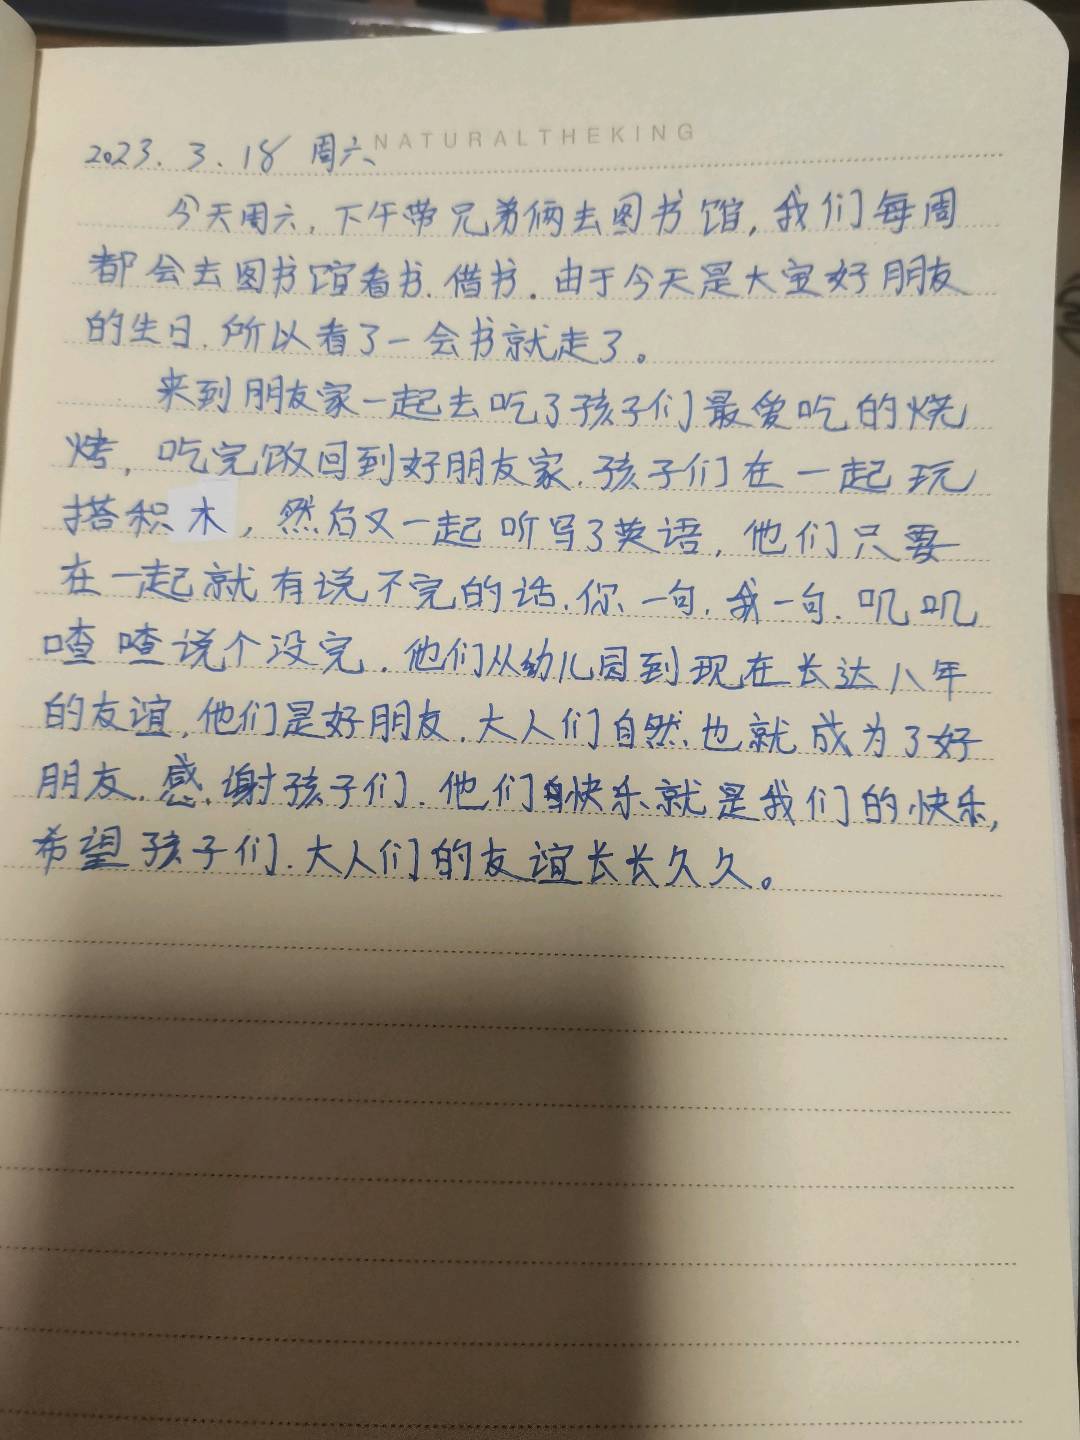 NATURALTHEKING
2023.3.18 周六
今天周六,下午带兄弟俩去图书馆,我们每周
都会去图书馆看书.借书.由于今天是大宝好朋友
的生日.所以看了一会书就走了。
来到朋友家一起去吃了孩子们最爱吃的烧
烤,吃完饭回到好朋友家.孩子们在一起玩
搭积木,然后又一起听写了英语,他们只要
在一起就有说不完的话.你一句.我一句.叽叽
喳喳说个没完.他们从幼儿园到现在长达八年
的友谊,他们是好朋友.大人们自然也就成为了好
朋友.感谢孩子们.他们的快乐就是我们的快乐,
希望孩子们.大人们的友谊长长久久。